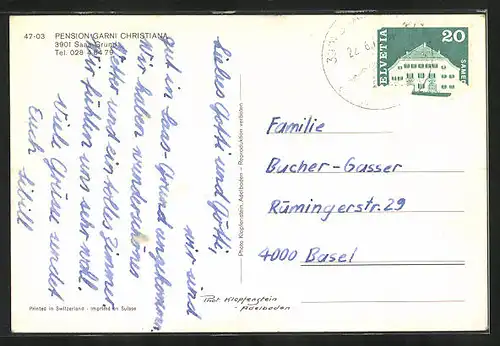 47-03 PENSION GARNI CHRISTIANA
3901 Saas-Grund
Tel. 028 4 84 79
Liebes Gotti und Götti,
wir sind
gut in Saas-Grund angekommen.
Wir haben wunderschönes
Wetter und ein tolles Zimmer.
Wir fühlen uns sehr wohl.
Viele Grüsse sendet
Euch Sibill
Printed in Switzerland - Imprimé en Suisse
Photo Klopfenstein, Adelboden - Reproduktion verboten
Phot. Klopfenstein
Adelboden
HELVETIA
20
Familie
Bucher-Gasser
Rümingerstr. 29
4000 Basel